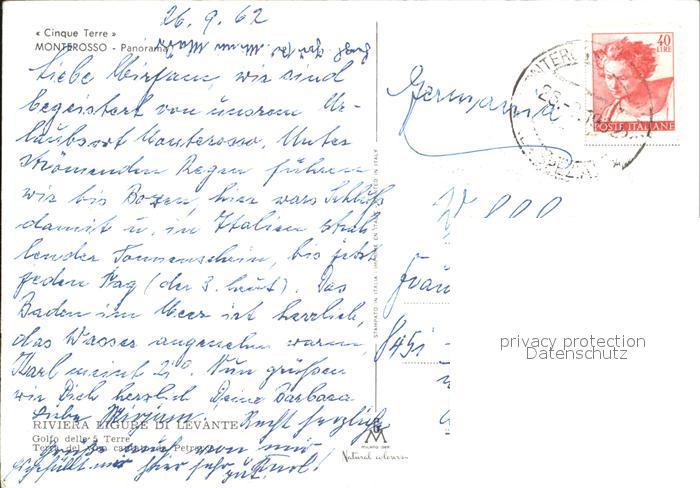 26.9.62
« Cinque Terre »
MONTEROSSO - Panorama
Liebe Mirjam, wir sind
begeistert von unserem Ur-
laubsort Monterosso. Unter
strömenden Regen fuhren
wir bis Bozen, hier wars Schluß
damit u. in Italien strah-
lender Sonnenschein, bis jetzt
jeden Tag (der 3. heut). Das
Baden im Meer ist herrlich,
das Wasser angenehm warm,
Karl meint 21°. Nun grüßen
wir Dich herzlich Deine Barbara
Liebe Mirjam! Recht herzliche
Grüße auch von mir
gefällt mir hier sehr gut. Karl!
RIVIERA LIGURE DI LEVANTE
Golfo delle 5 Terre
STAMPATO IN ITALIA - IMPRIMÉ EN ITALIE - PRINTED IN ITALY
MILANO
Natural colour
Germania
40
LIRE
POSTE ITALIANE
privacy protection
Datenschutz